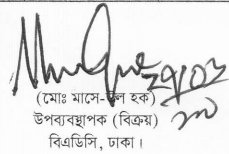 ২৭/০১
(মোঃ মাসে-উল হক)
উপব্যবস্থাপক (বিক্রয়)
বিএডিসি, ঢাকা।